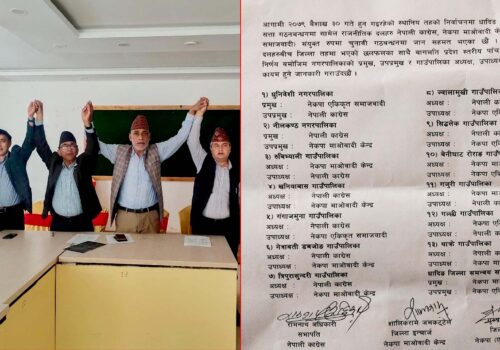 आगामी २०७९ बैशाख ३० गते हुन गइरहेको स्थानिय तहको निर्वाचनमा धादिङ
सत्ता गठबन्धनमा सामेल राजनीतिक दलहरु नेपाली काग्रेस, नेकपा माओवादी केन्द्र
समाजवादी) संयुक्त रुपमा चुनावी गठबन्धनमा जान सहमत भएका छौं ।
दलहरु विच जिल्ला तहमा भएको छलफलका साथै बागमति प्रदेश स्तरीय
निर्णय बमोजिम नगरपालिकाको प्रमुख, उपप्रमुख र गाउँपालिका अध्यक्ष, उपाध्यक्ष
कायम हुने जानकारी गराउँदछौं ।
१) धुनिवेशी नगरपालिका
प्रमुख : नेकपा एकिकृत समाजवादी
उपप्रमुख : नेपाली काग्रेस
२) नीलकण्ठ नगरपालिका
प्रमुख : नेपाली काग्रेस
उपप्रमुख : नेकपा माओवादी केन्द्र
३) रुबिभ्याली गाउँपालिका
अध्यक्ष : नेपाली काग्रेस
उपाध्यक्ष : नेकपा माओवादी केन्द्र
४) खनियाबास गाउँपालिका
अध्यक्ष : नेपाली काग्रेस
उपाध्यक्ष : नेकपा माओवादी केन्द्र
५) गंगाजमुना गाउँपालिका
अध्यक्ष : नेपाली काग्रेस
उपाध्यक्ष : नेकपा एकिकृत समाजवादी
६) नेत्रावती डबजोङ गाउँपालिका
अध्यक्ष : नेपाली काग्रेस
उपाध्यक्ष : नेकपा माओवादी केन्द्र
७) त्रिपुरासुन्दरी गाउँपालिका
अध्यक्ष : नेकपा माओवादी केन्द्र
उपाध्यक्ष : नेपाली काग्रेस
८) ज्वालामुखी गाउँपालिका
अध्यक्ष : नेपाली
उपाध्यक्ष : नेकपा
९) सिद्धलेक गाउँपालिका
अध्यक्ष : नेकपा
उपाध्यक्ष : नेपाली
१०) बेनीघाट रोराङ
अध्यक्ष : नेकपा
उपाध्यक्ष : नेपाली
११) गजुरी गाउँपालिका
अध्यक्ष : नेकपा
उपाध्यक्ष : नेपाली
१२) गल्छी
अध्यक्ष : नेकपा
उपाध्यक्ष : नेपाली
१३) थाक्रे गाउँपालिका
अध्यक्ष : नेपाली
उपाध्यक्ष : नेकपा
धादिङ जिल्ला समन्वय
प्रमुख : नेकपा
उपप्रमुख : नेपाली
रामनाथ अधिकारी
सभापति
नेपाली काग्रेस
शालिकराम जमकट्टेल
जिल्ला इन्चार्ज
नेकपा माओवादी केन्द्र
नेकपा